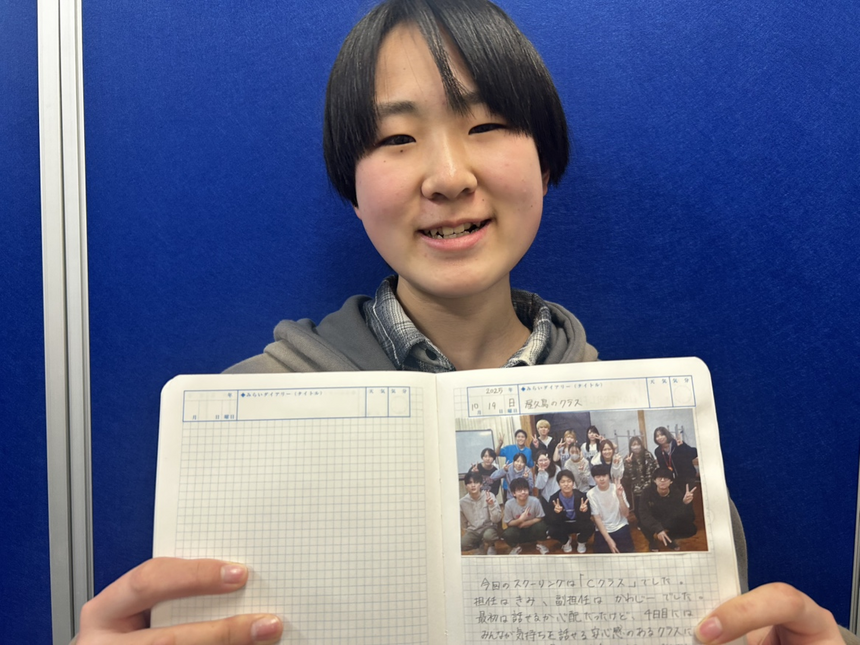 年
◆みらいダイアリー(タイトル)
天気
気分
月 日 曜日
2025 年
◆みらいダイアリー(タイトル)
天気
気分
10月 19日 日曜日
屋久島のクラス
今回のスクーリングは「Cクラス」でした。
担任はきみ、副担任は かわじーでした。
最初は話せるか心配だったけど、4日目には
みんなが気持ちを話せる安心感のあるクラスに